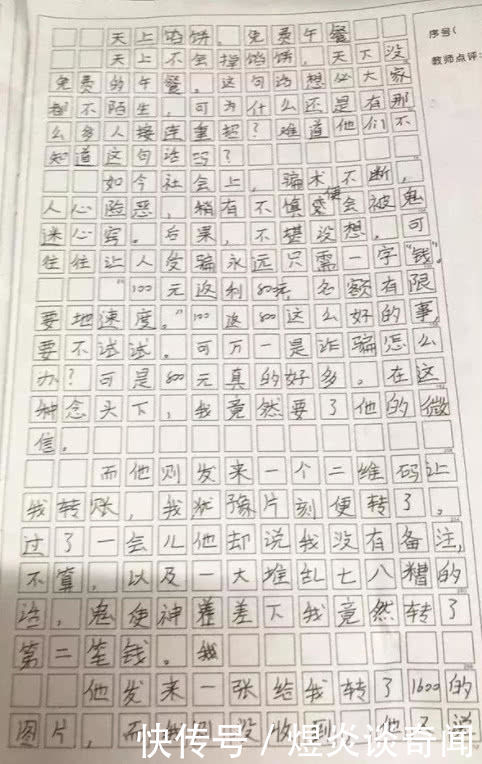 序号(
教师点评:
天上馅饼，免费午餐
天上不会掉馅饼，天下没
免费的午餐。这句话想必大家
都不陌生，可为什么还是有那
么多人接连重起？难道他们不
知道这句话吗？
如今社会上，骗术不断，
人心险恶，稍有不慎便会被鬼
迷心窍。后果，不堪设想。可
往往让人受骗永远只需一字“钱”。
“100元返利800元，名额有限
要地速度。”100返800这么好的事，
要不试试。可万一是诈骗怎么
办？可是800元真的好多。在这
种念头下，我竟然要了他的微
信。
而他则发来一个二维码让
我转账，我犹豫片刻便转了。
过了一会儿他却说我没有备注，
不算，以及一大堆乱七八糟的
话，鬼使神差差下我竟然转了
第二笔钱。我
他发来一张给我转了1600的
图片，而我则没收到，他又说
快传号/煜炎谈奇闻